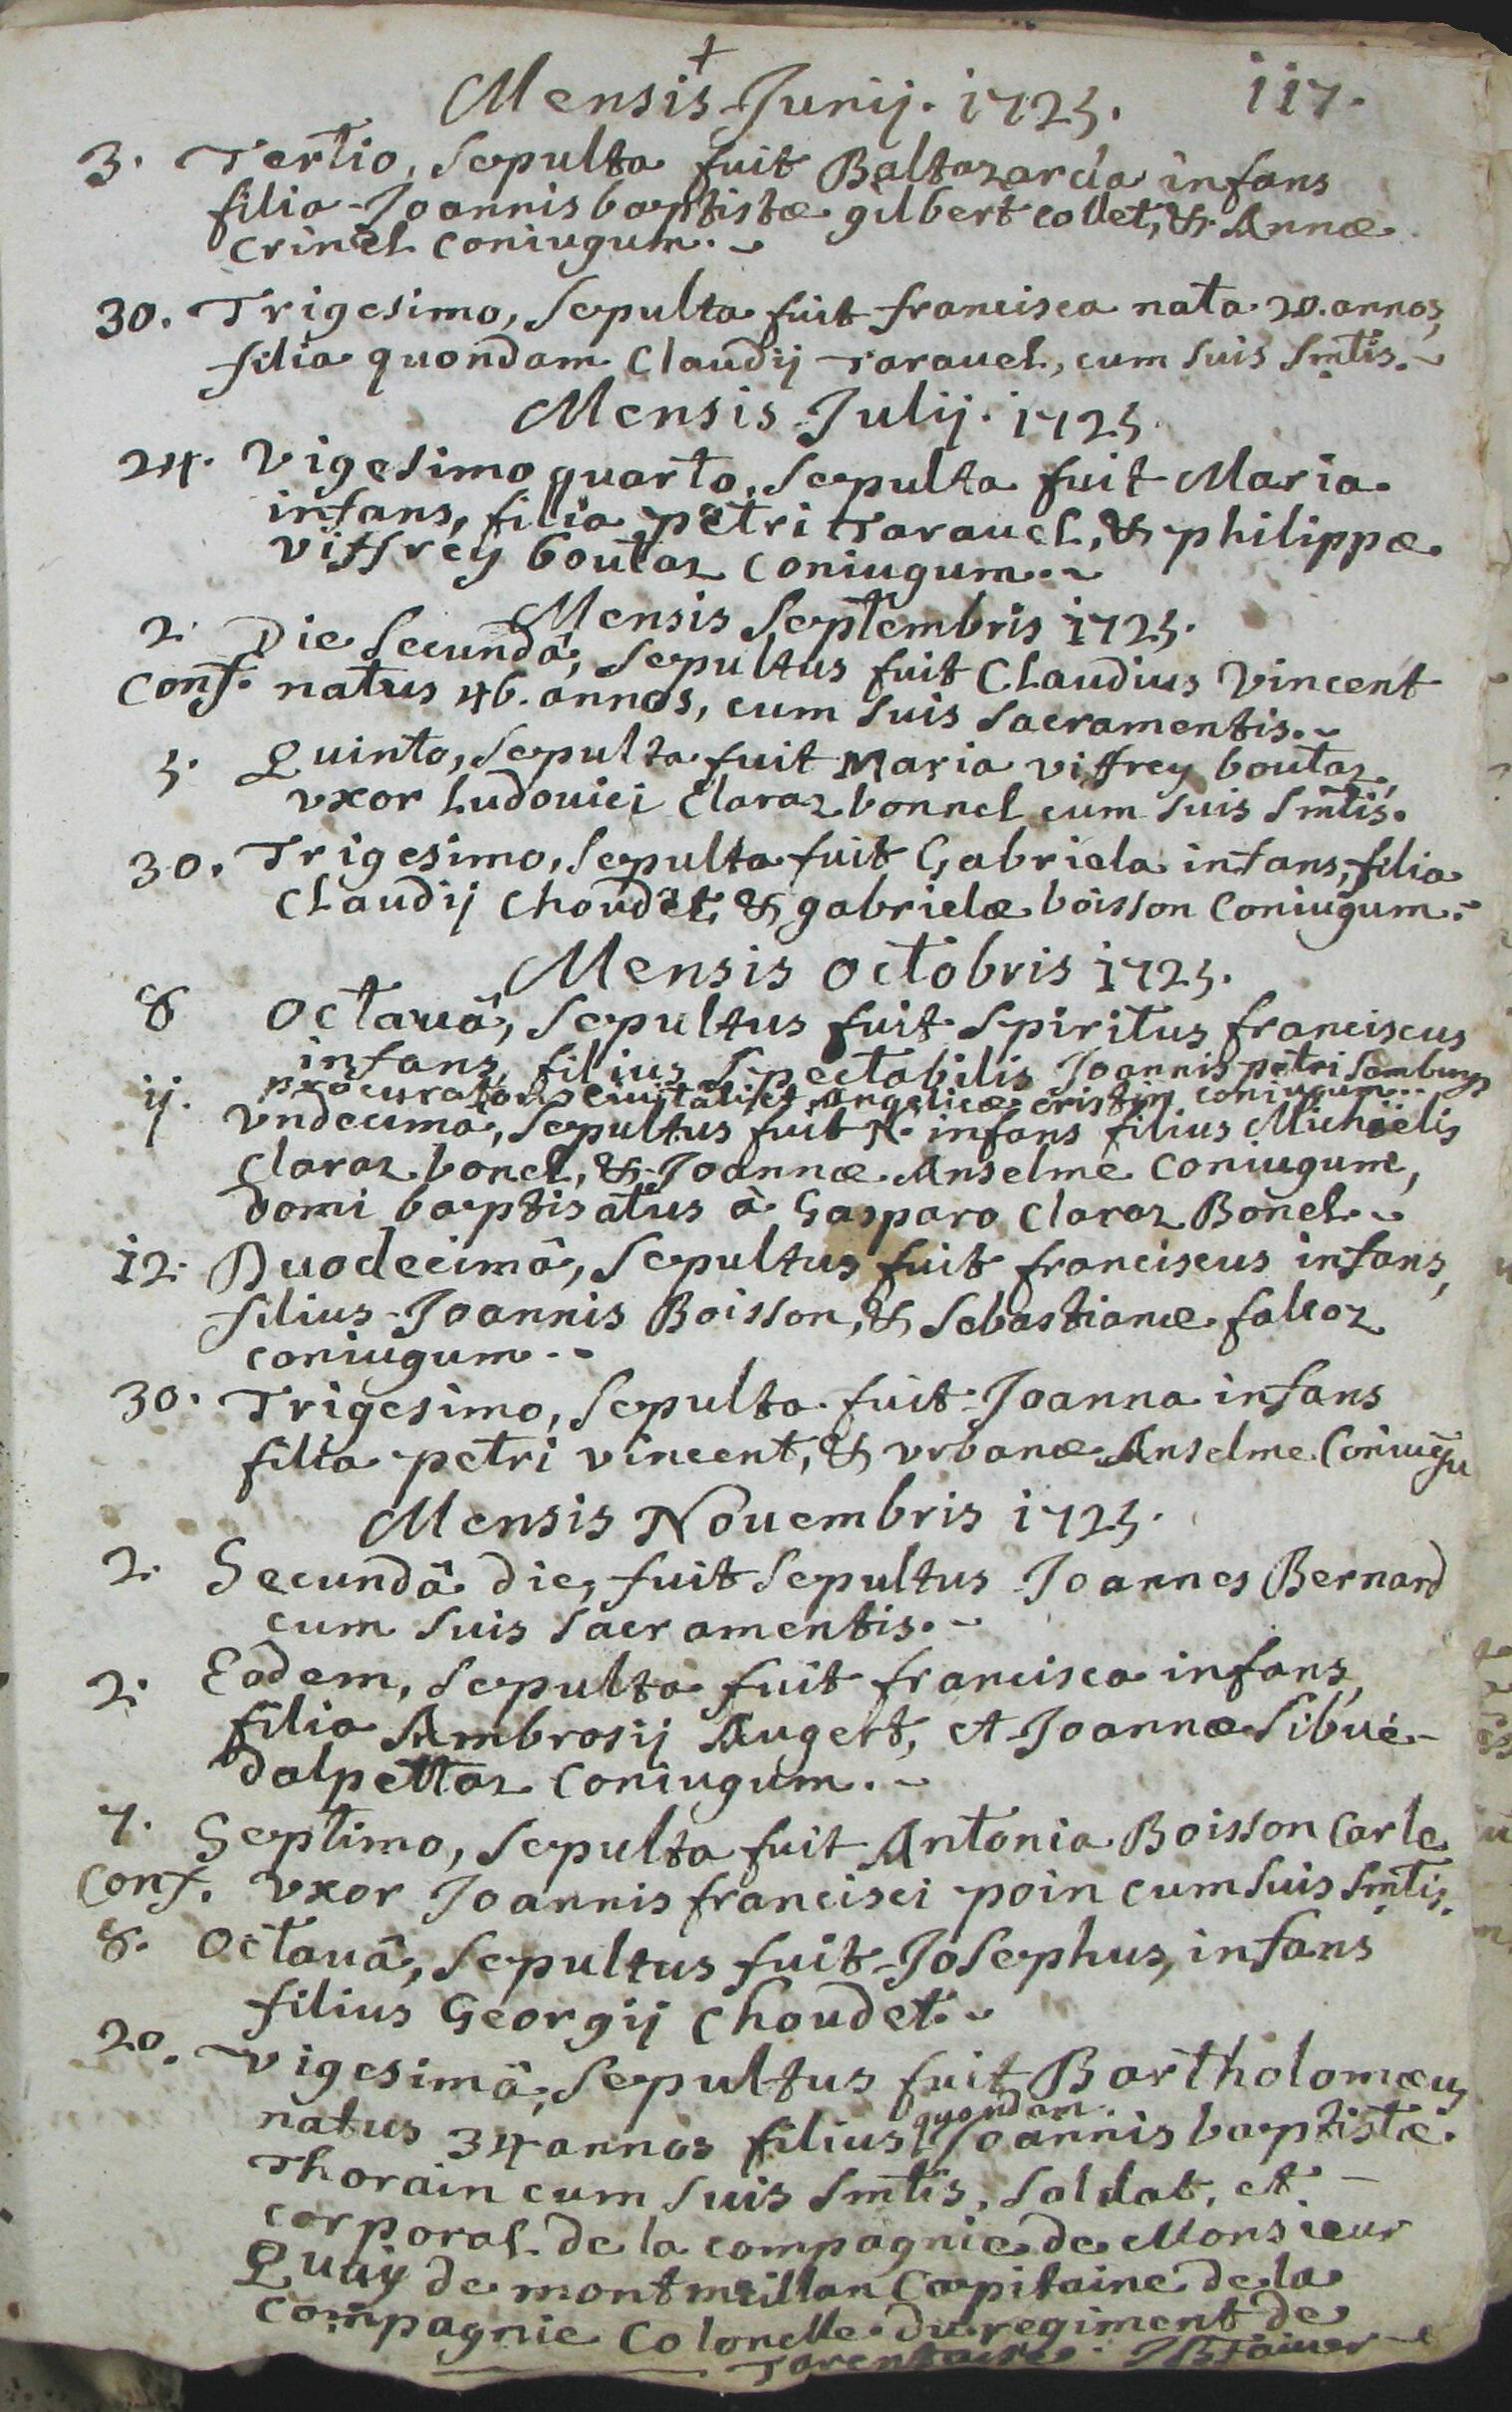 Mensis Junij. 1725. 117.
3. Tertio, sepulta fuit Baltazarda infans
filia Joannis baptistæ gilbert collet, & Annæ
Crinel coniugum.
30. Trigesimo, sepulta fuit francisca nata 20. annos,
filia quondam Claudij Tarauel, cum suis Smtis.
Mensis Julij. 1725.
24. Vigesimo quarto, sepulta fuit Maria
infans, filia petri Tarauel, & philippæ
viffrey boutaz coniugum.
Mensis Septembris 1725.
2. Die Secundâ, sepultus fuit Claudius Vincent
Conf. natus 46. annos, cum suis sacramentis.
5. Quinto, sepulta fuit Maria viffrey boutaz,
vxor Ludouici Claraz bonnel cum suis Smtis.
30. Trigesimo, sepulta fuit Gabriela infans, filia
Claudij Choudet, & gabrielæ boisson Coniugum.
Mensis octobris 1725.
8 Octauâ, sepultus fuit Spiritus franciscus
infans, filius Spectabilis Joannis petri
procuratoris ciuitatis, et angelicæ cristin coniugum.
ij. vndecima, sepultus fuit N. infans filius Michäelis
Claraz bonel, & Joannæ Anselme Coniugum,
domi baptisatus à Gasparo Claraz Bonel.
12. Duodecimâ, sepultus fuit franciscus infans,
filius Joannis Boisson, & Sebastianæ falcoz
coniugum.
30. Trigesimo, sepulta fuit Joanna infans
filia petri vincent, & vrbanæ Anselme Coniugu
Mensis Nouembris 1725.
2. Secundâ die, fuit sepultus Joannes Bernard
cum suis sacramentis.
2. Eodem, sepulta fuit francisca infans,
filia Ambrosij Augert, et Joannæ Sibué
dalpettaz Coniugum.
7. Septimo, sepulta fuit Antonia Boisson Carle
Conf. vxor Joannis francisci poin cum suis Smtis.
8. Octauâ, sepultus fuit Josephus, infans
filius Georgij Choudet.
20. vigesimâ, sepultus fuit Bartholomæus
natus 34 annos filius quondam Joannis baptistæ
Thorain cum suis Smtis, Soldat, et
corporal de la compagnie de Monsieur
Quay de montmeillan Capitaine de la
compagnie Colonelle du regiment de
Tarentaise.